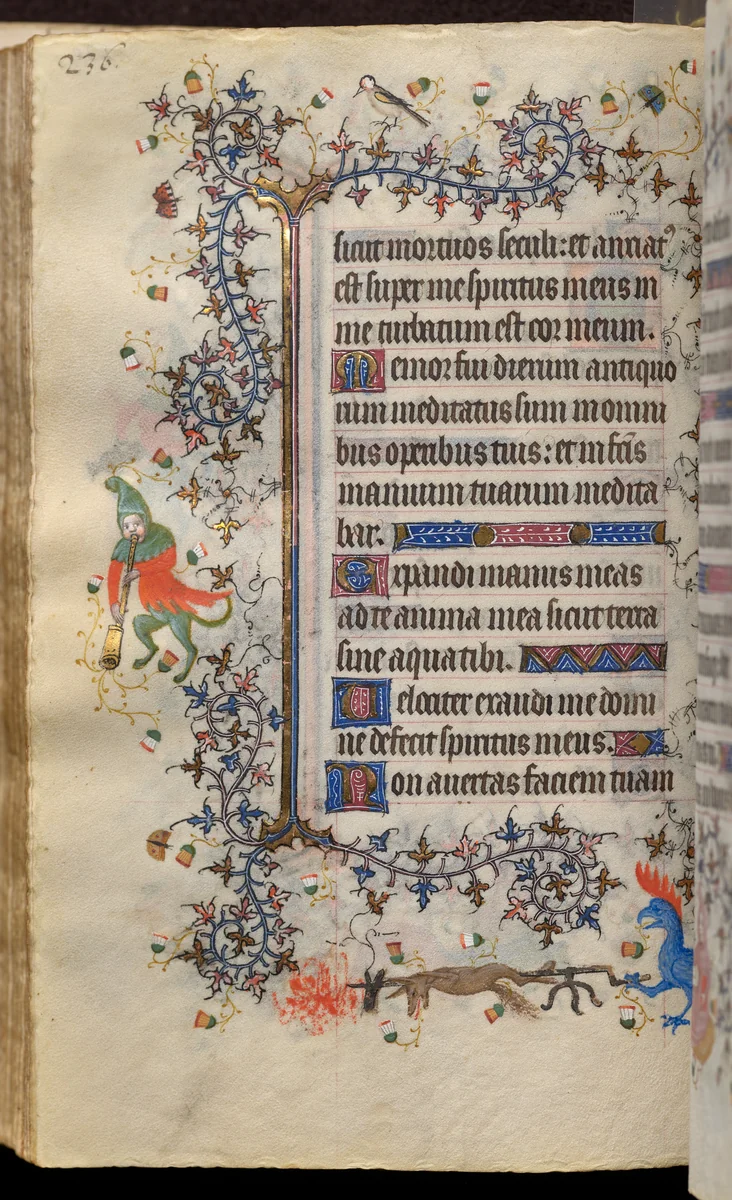 236.
sicut mortuos seculi: et anxiatꝰ
est super me spiritus meus in
me turbatum est cor meum.
Memor fui dierum antiquo
rum meditatus sum in omni
bus operibus tuis: et in fc̄is
manuum tuarum medita
bar.
Expandi manus meas
ad te anima mea sicut terra
sine aqua tibi.
Velociter exaudi me domi
ne defecit spiritus meus.
Non auertas faciem tuam